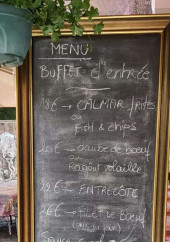 MENU
BUFFET d'entrée
18€ → CALMAR / frites
ou
Fish & chips
20€ → de bœuf
ou
volaille
22€ → ENTRECÔTE
26€ → FILET DE BOEUF